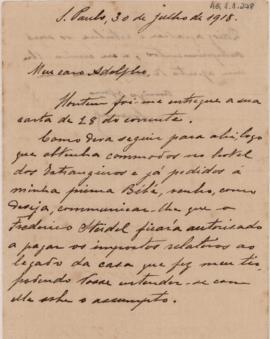 AE.1.1.248
S. Paulo, 30 de julho de 1918.
Meu caro Adolpho,
Hontem foi-me entregue a sua
carta de 28 do corrente.
Como devo seguir para ahi logo
que obtenha commodos no hotel
dos Estrangeiros e já pedidos á
minha prima Bébé, venho, como
deseja, communicar-lhe que o
Frederico Steidel ficará autorisado
a pagar os impostos relativos ao
legado da casa que fez meu tio,
podendo Vosse entender-se com
elle sobre o assumpto.